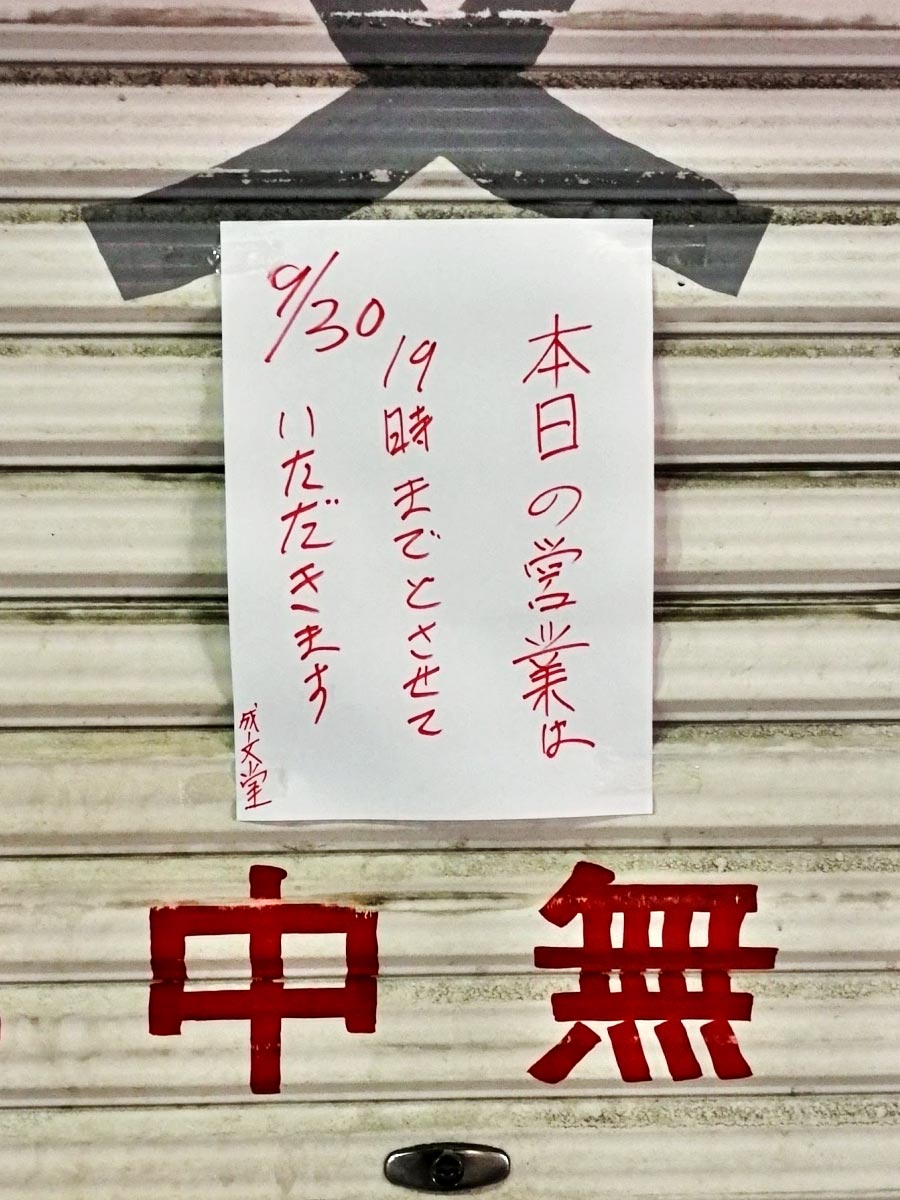 文
9/30
本日の営業は
19時までとさせて
いただきます
成文堂
無
中